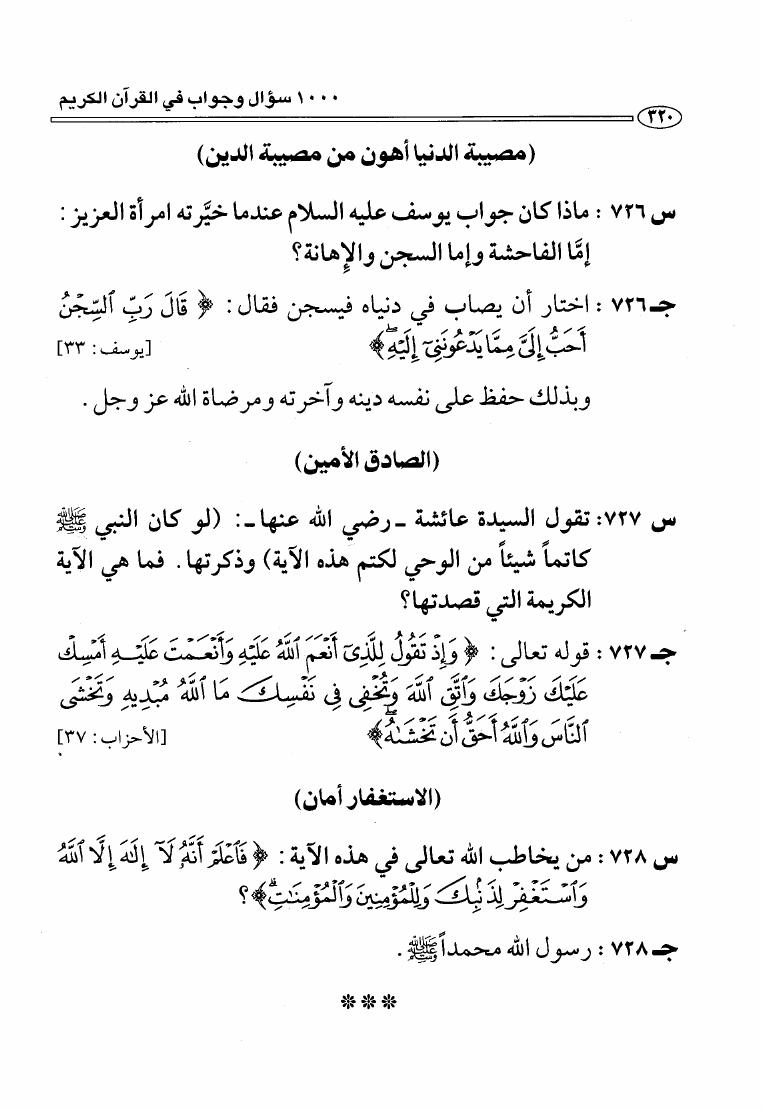 ١٠٠٠ سؤال وجواب في القرآن الكريم
٣٢٠
(مصيبة الدنيا أهون من مصيبة الدين)
س ٧٢٦ : ماذا كان جواب يوسف عليه السلام عندما خيَّرته امرأة العزيز :
إمَّا الفاحشة وإما السجن والإهانة؟
جـ ٧٢٦ : اختار أن يصاب في دنياه فيسجن فقال : ﴿ قَالَ رَبِّ ٱلسِّجْنُ
أَحَبُّ إِلَيَّ مِمَّا يَدْعُونَنِىٓ إِلَيْهِ ۖ ﴾ [يوسف : ٣٣]
وبذلك حفظ على نفسه دينه وآخرته ومرضاة الله عز وجل .
(الصادق الأمين)
س ٧٢٧: تقول السيدة عائشة ـ رضي الله عنها ـ: (لو كان النبي ﷺ
كاتماً شيئاً من الوحي لكتم هذه الآية) وذكرتها. فما هي الآية
الكريمة التي قصدتها؟
جـ ٧٢٧ : قوله تعالى : ﴿ وَإِذْ تَقُولُ لِلَّذِىٓ أَنْعَمَ ٱللَّهُ عَلَيْهِ وَأَنْعَمْتَ عَلَيْهِ أَمْسِكْ
عَلَيْكَ زَوْجَكَ وَٱتَّقِ ٱللَّهَ وَتُخْفِى فِى نَفْسِكَ مَا ٱللَّهُ مُبْدِيهِ وَتَخْشَى
ٱلنَّاسَ وَٱللَّهُ أَحَقُّ أَن تَخْشَىٰهُ ۖ ﴾ [الأحزاب : ٣٧]
(الاستغفار أمان)
س ٧٢٨ : من يخاطب الله تعالى في هذه الآية : ﴿ فَٱعْلَمْ أَنَّهُۥ لَآ إِلَٰهَ إِلَّا ٱللَّهُ
وَٱسْتَغْفِرْ لِذَنۢبِكَ وَلِلْمُؤْمِنِينَ وَٱلْمُؤْمِنَٰتِ ۗ ﴾ ؟
جـ ٧٢٨ : رسول الله محمداً ﷺ .
***